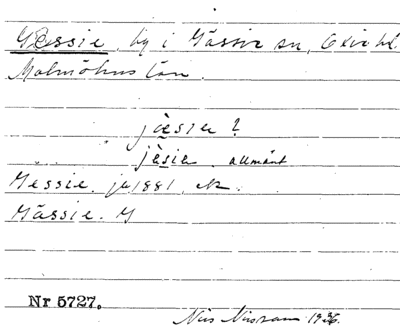 Gessie, by i Gässie sn, Oxie hd
Malmöhus län.
jèsia ?
jèsia. allmänt
Gessie. jb 1881.
Gässie. G
Nr 5727.
Nils Nilsson 1936.